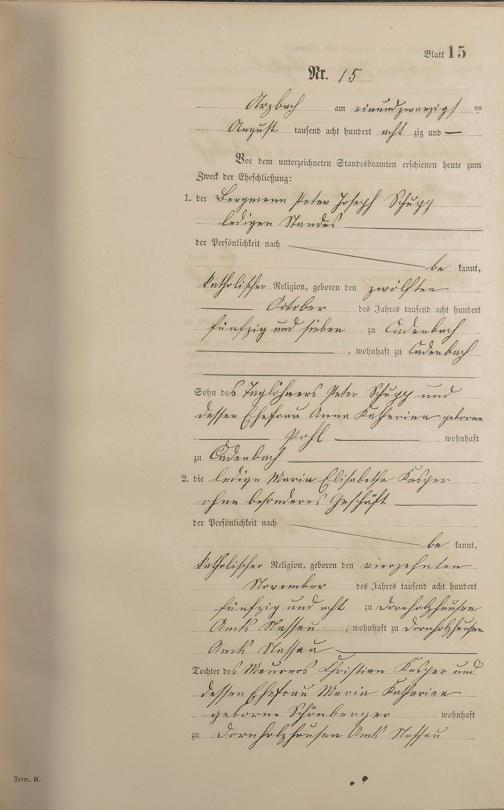 Blatt 15
Nr. 15
Arzbach am einundzwanzigsten
August tausend acht hundert achtzig und —
Vor dem unterzeichneten Standesbeamten erschienen heute zum
Zweck der Eheschließung:
1. der Bergmann Peter Joseph Schupp
ledigen Standes
der Persönlichkeit nach
bekannt,
katholischer Religion, geboren den zwölften
October des Jahres tausend acht hundert
fünfzig und sieben zu Cadenbach
, wohnhaft zu Cadenbach
Sohn des Taglöhners Peter Schupp und
dessen Ehefrau Anna Katharina geborne
Pohl wohnhaft
zu Cadenbach
2. die ledige Maria Elisabetha Kasper
ohne besonderes Geschäft
der Persönlichkeit nach
bekannt,
katholischer Religion, geboren den vierzehnten
November des Jahres tausend acht hundert
fünfzig und acht zu Dornholzhausen
Amts Nassau, wohnhaft zu Dornholzhausen
Amts Nassau
Tochter des Maurers Christian Kasper und
dessen Ehefrau Maria Katharina
geborne Schönberger wohnhaft
zu Dornholzhausen Amts Nassau
Form. B.